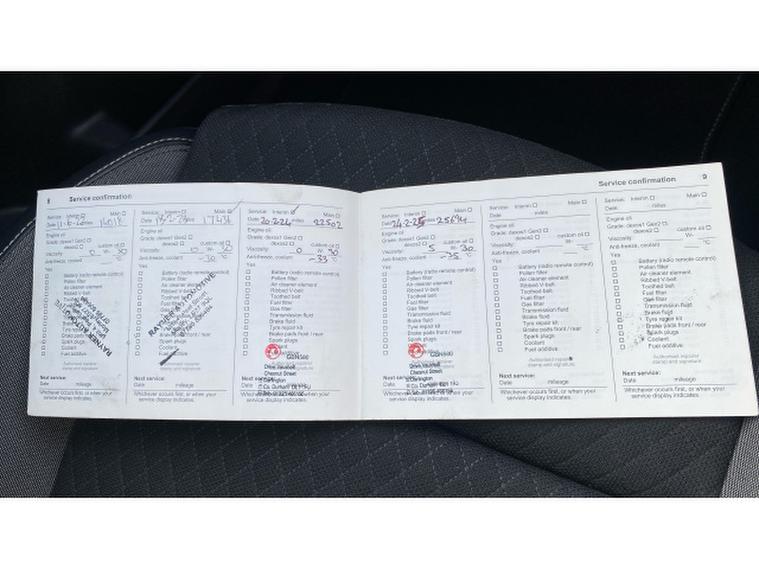 8 Service confirmation
Service: Interim Main
Date 11-6-2 miles 14018
Engine oil
Grade: dexos1 Gen2 custom oil
dexos2
Viscosity: 0 W- 30
Anti-freeze, coolant °C
Yes
Battery (radio remote control)
Pollen filter
Air cleaner element
Ribbed V-belt
Toothed belt
Fuel filter
Gas filter
Next service:
Date mileage
Whichever occurs first, or when your
service display indicates.
Service: Interim Main
Date 13-2-23 miles 17434
Engine oil
Grade: dexos1 Gen2 custom oil
dexos2
Viscosity: 0 W- 30
Anti-freeze, coolant -30 °C
Yes
Battery (radio remote control)
Pollen filter
Air cleaner element
Ribbed V-belt
Toothed belt
Fuel filter
RAYNER AUTOMOTIVE
Coolant
Fuel additive
Authorised repairer
stamp and signature
Next service:
Date mileage
Whichever occurs first, or when your
service display indicates.
Service: Interim Main
Date 20-2-24 miles 22502
Engine oil
Grade: dexos1 Gen2 custom oil
dexos2
Viscosity: 0 W- 30
Anti-freeze, coolant -33 °C
Yes
Battery (radio remote control)
Pollen filter
Air cleaner element
Ribbed V-belt
Toothed belt
Fuel filter
Gas filter
Transmission fluid
Brake fluid
Tyre repair kit
Brake pads front / rear
Spark plugs
Drive Vauxhall
Chesnut Street
Darlington
Co. Durham DL1 1RJ
Next service:
Date
Whichever occurs first, or when your
service display indicates.
Service confirmation 9
Service: Interim Main
Date 24-2-25 miles 25694
Engine oil
Grade: dexos1 Gen2 custom oil
dexos2
Viscosity: 5 W- 30
Anti-freeze, coolant -35 °C
Yes
Battery (radio remote control)
Pollen filter
Air cleaner element
Ribbed V-belt
Toothed belt
Fuel filter
Gas filter
Transmission fluid
Brake fluid
Tyre repair kit
Brake pads front / rear
Spark plugs
Drive Vauxhall
Chesnut Street
Darlington
Co. Durham DL1 1RJ
Next service:
Date
Whichever occurs first, or when your
service display indicates.
Service: Interim Main
Date miles
Engine oil
Grade: dexos1 Gen2 custom oil
dexos2
Viscosity: W-
Anti-freeze, coolant °C
Yes
Battery (radio remote control)
Pollen filter
Air cleaner element
Ribbed V-belt
Toothed belt
Fuel filter
Gas filter
Transmission fluid
Brake fluid
Tyre repair kit
Brake pads front / rear
Spark plugs
Coolant
Fuel additive
Authorised repairer
stamp and signature
Next service:
Date mileage
Whichever occurs first, or when your
service display indicates.
Service: Interim Main
Date: miles
Engine oil
Grade: dexos1 Gen2 custom oil
dexos2
Viscosity: W-
Anti-freeze, coolant °C
Yes
Battery (radio remote control)
Pollen filter
Air cleaner element
Ribbed V-belt
Toothed belt
Fuel filter
Gas filter
Transmission fluid
Brake fluid
Tyre repair kit
Brake pads front / rear
Spark plugs
Coolant
Fuel additive
Authorised repairer
stamp and signature
Next service:
Date mileage
Whichever occurs first, or when your
service display indicates.